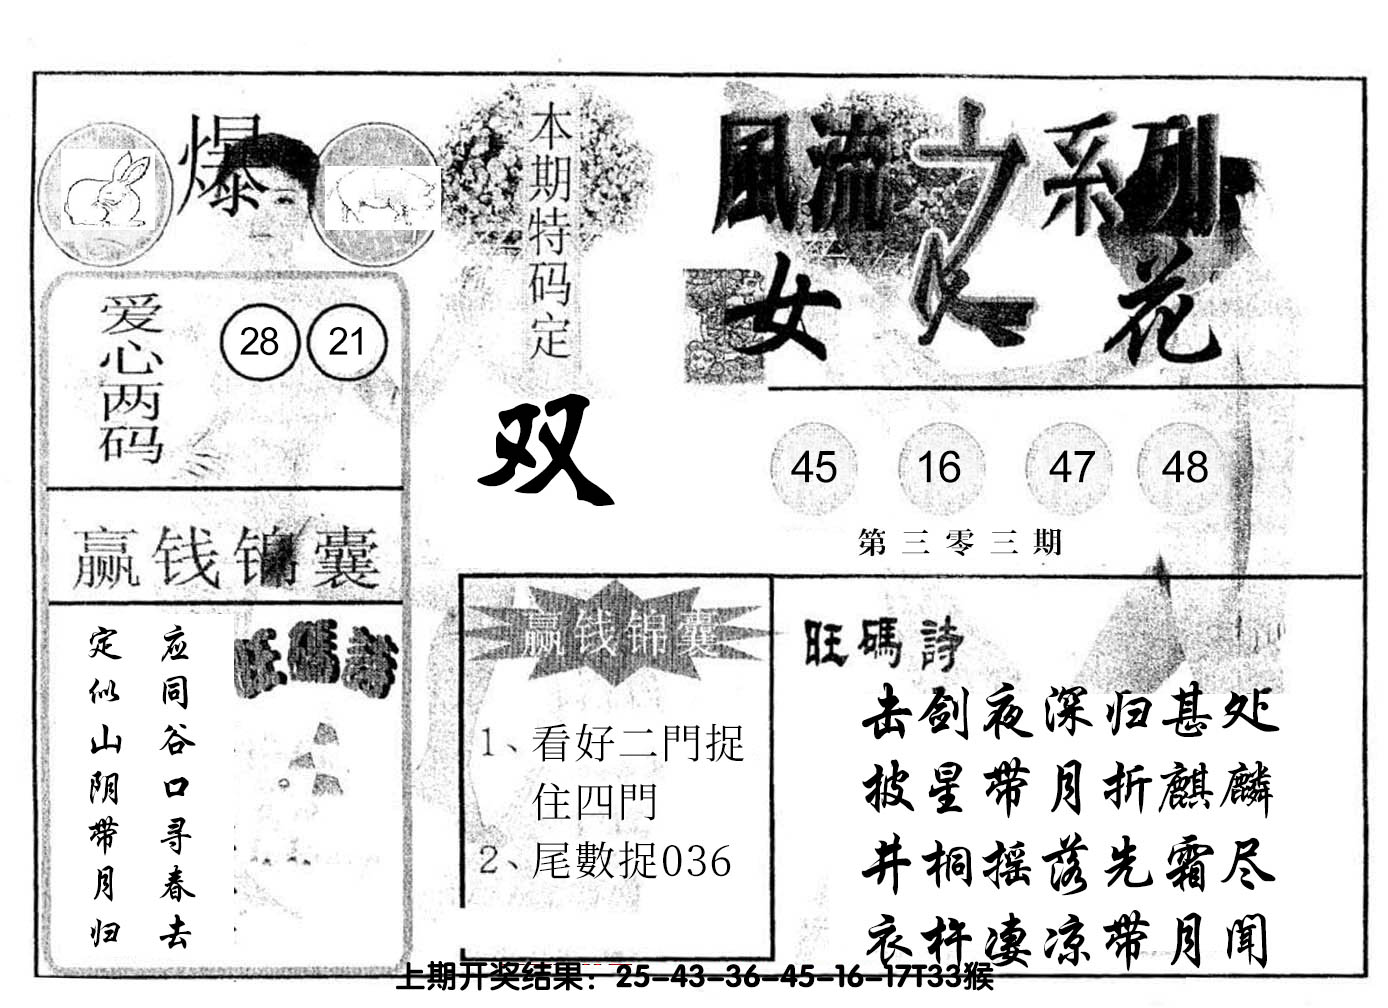 爆
本期特码定
双
風流之系列
女人花
爱心两码
28 21
45 16 47 48
第三零三期
赢钱锦囊
应同谷口寻春去
定似山阴带月归
旺碼詩
赢钱锦囊
1、看好二門捉
住四門
2、尾數捉036
旺碼詩
击剑夜深归甚处
披星带月折麒麟
井桐摇落先霜尽
衣杵凄凉带月闻
上期开奖结果：25-43-36-45-16-17T33猴